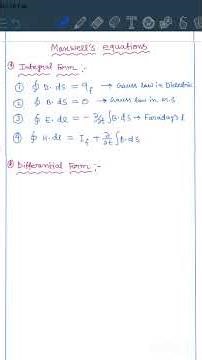 Maxwell's equations
Integral Form :-
① ∮ D. ds = q_f → Gauss law in Dielectric
② ∮ B. ds = 0 → Gauss law in M.S
③ ∮ E. dl = - ∂/∂t ∫B.ds → Faraday's l
④ ∮ H. dl = I_f + ∂/∂t ∫D.ds
Differential Form :-